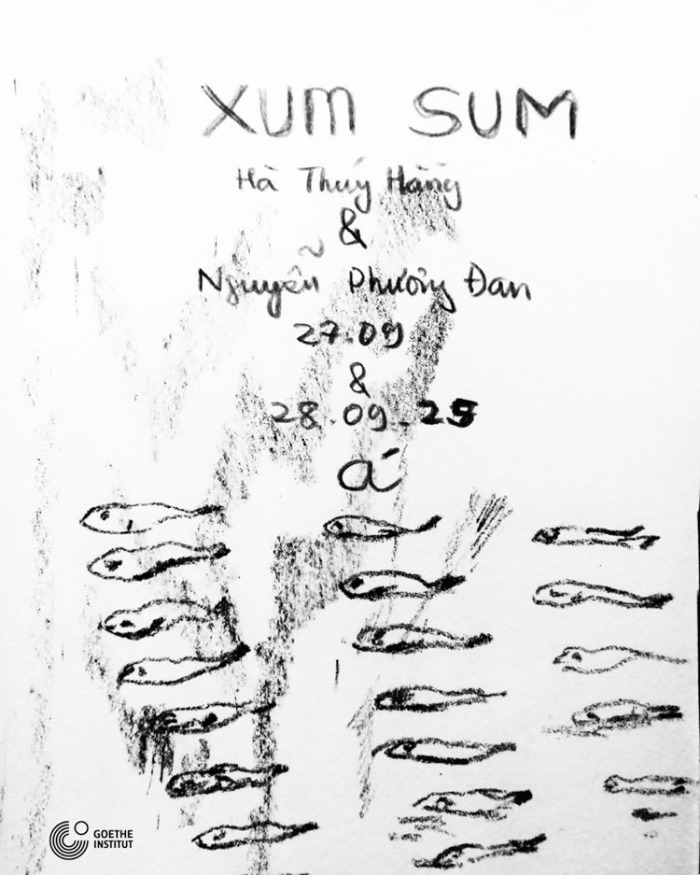 XUM SUM
Hà Thuý Hằng
&
Nguyễn Phương Đan
27.09
&
28.09.25
á
GOETHE
INSTITUT